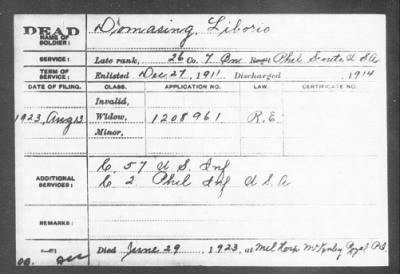 DEAD
NAME OF SOLDIER:
Domasing, Liborio
SERVICE:
Late rank, 26 Co. 7 Bn. Reg't Phil Scouts U S A
TERM OF SERVICE:
Enlisted Dec. 27, 1911 Discharged 1914
DATE OF FILING. CLASS. APPLICATION NO. LAW. CERTIFICATE NO.
Invalid,
1923, Aug 13 Widow, 1208961 R.E.
Minor,
ADDITIONAL SERVICES:
C. 57 U S Inf
C. 2 Phil Inf U S A
REMARKS:
Died June 29, 1923, at Mil Hosp McKinley Rizal P.I.